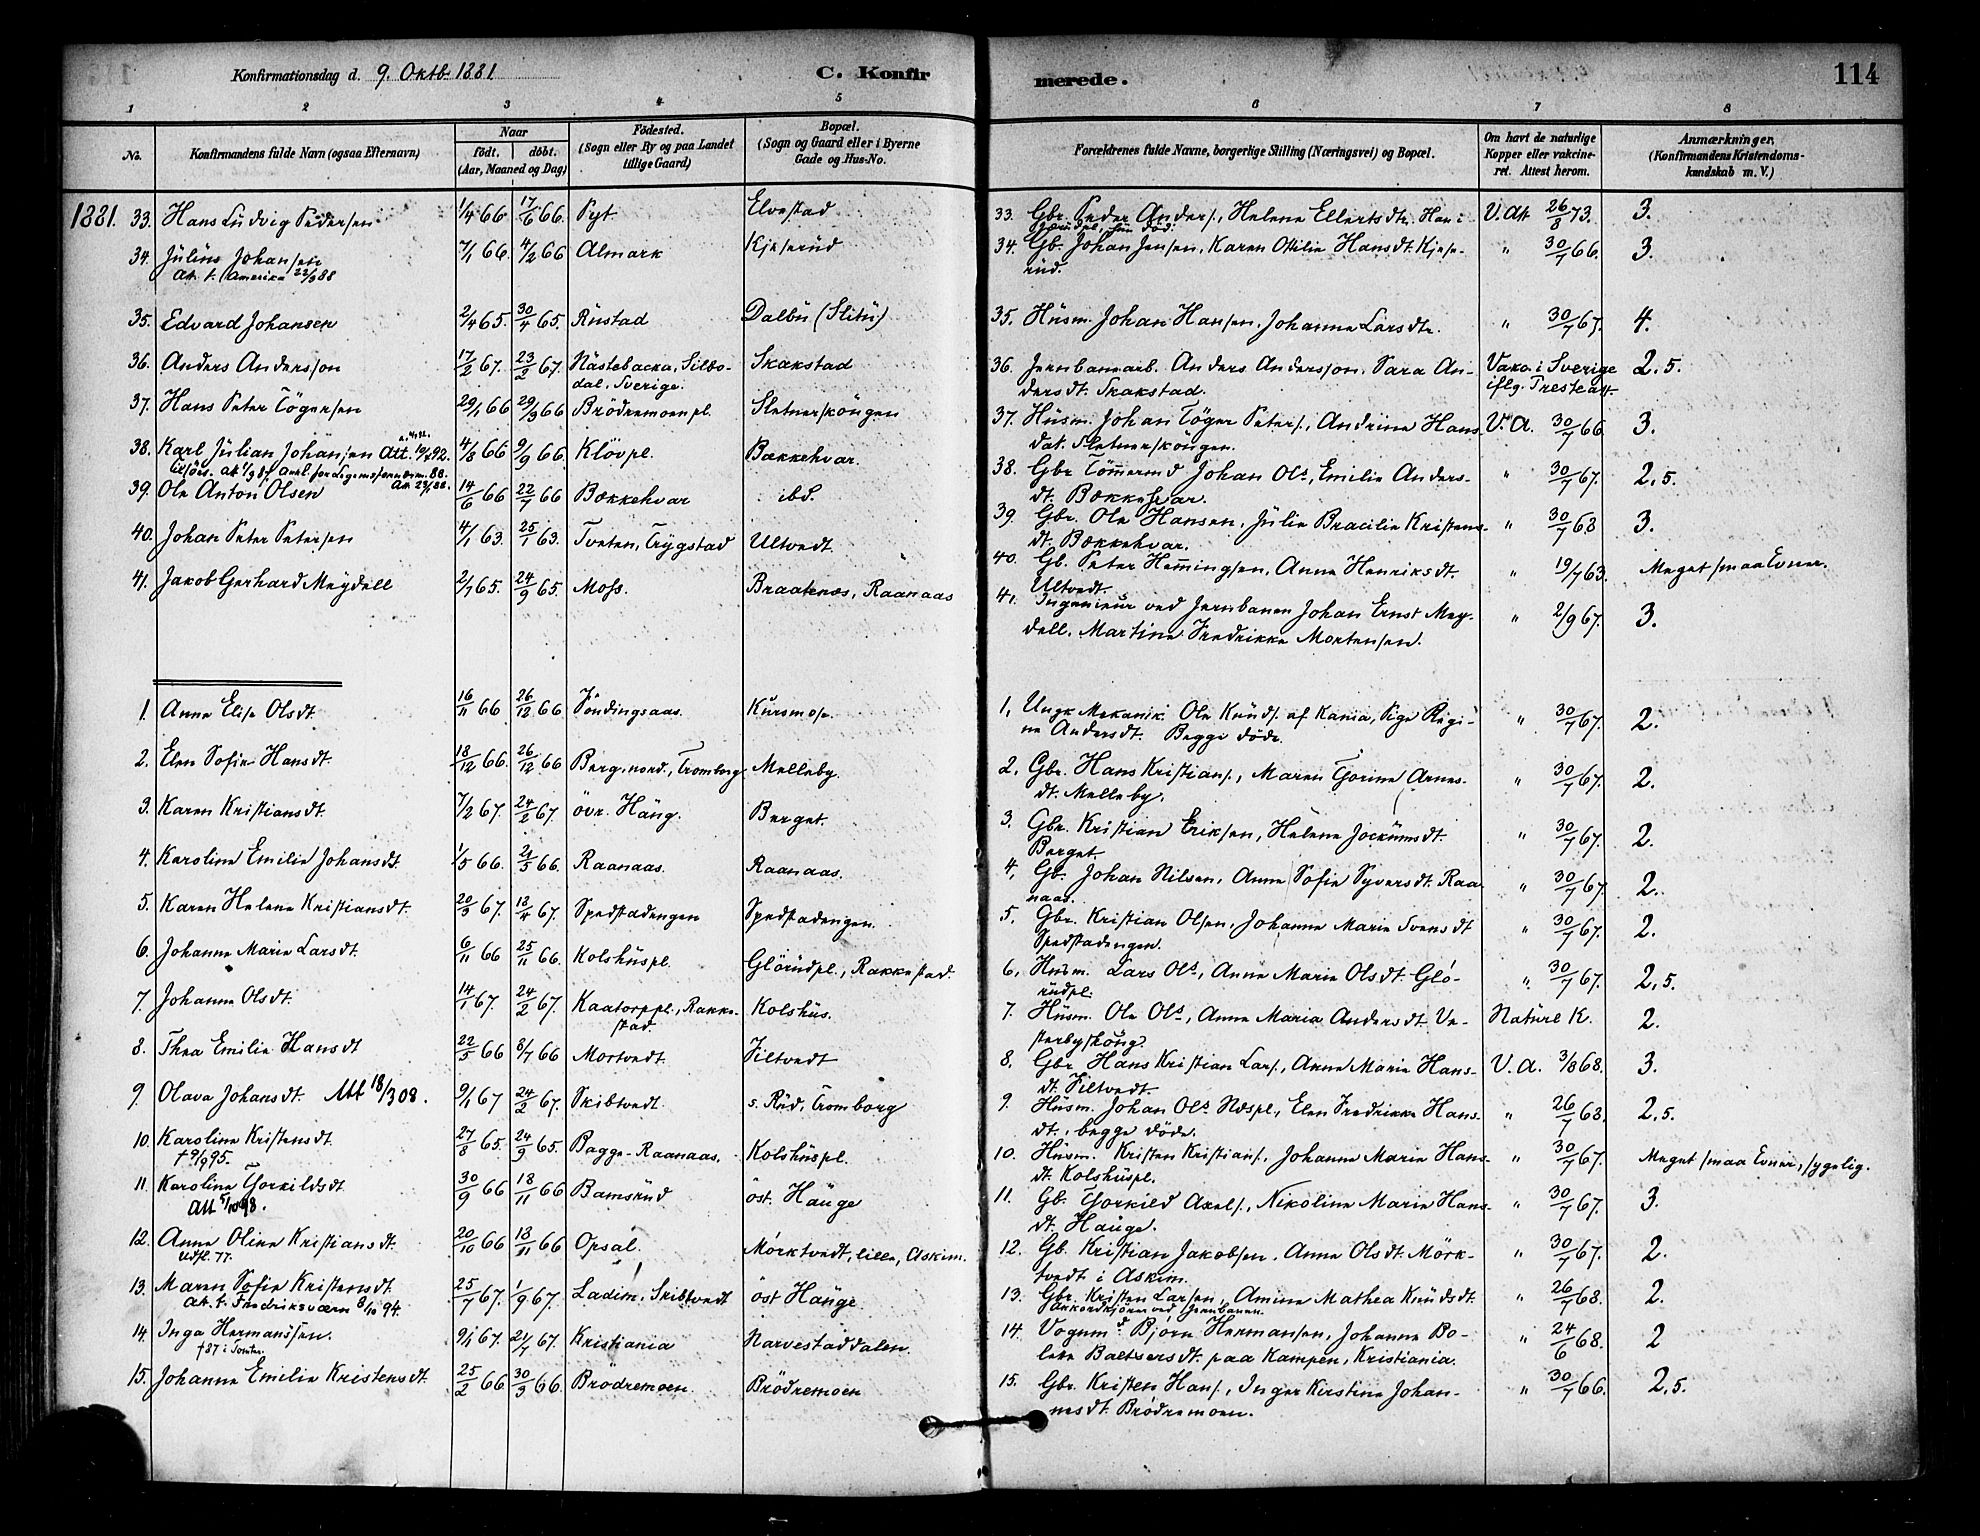 Konfirmationsdag d. 9. Oktb. 1881
C. Konfirmerede.
114
1 2 3 4 5 6 7 8
No.
Konfirmandens fulde Navn (ogsaa Efternavn)
Naar
födt. döbt.
(Aar, Maaned og Dag)
Födested.
(Sogn eller By og paa Landet
tillige Gaard)
Bopæl.
(Sogn og Gaard eller i Byerne
Gade og Hus-No.
Forældrenes fulde Navne, borgerlige Stilling (Næringsvei) og Bopæl.
Om havt de naturlige
Kopper eller vakcine-
ret. Attest herom.
Anmærkninger,
(Konfirmandens Kristendoms-
kundskab m. V.)
1881. 33. Hans Ludvig Pedersen 1/4 66 17/6 66. Pyt Elvestad 33. Gbr. Peder Anders., Helene Ellertsdtr. Han i V. At. 26/8 73. 3.
34. Julius Johansen 7/1 66. 4/2 66 Almark Kjeserud 34. Gb. Johan Jensen, Karen Otilie Hansdt. Kjese- " 30/7 66. 3.
Att. t. Amerika 22/3 88
rud.
35. Edvard Johansen 2/4 65. 30/4 65. Rustad Dalbu (Slitu) 35. Husm. Johan Hansen, Johanne Larsdtr. " 30/7 67. 4.
36. Anders Andersson 17/2 67. 23/2 67. Nästebacka, Silbo- Skakstad 36. Jernbanearb. Anders Andersson, Sara An- Vakc. i Sverige 2,5.
dal, Sverige.
dersdt. Skakstad. iflg. Presteatt.
37. Hans Peter Tögersen 29/1 66 29/3 66 Brödremoen pl. Sletnerskougen 37. Husm. Johan Töger Peters., Andrine Hans- V. A. 30/7 66. 3.
dat. Sletnerskougen.
38. Karl Julian Johansen Att. 19/4 92. 4/8 66 9/9 66. Klövpl. Bækkehvar. 38. Gbr. Tömmermd Johan Ols., Emilie Anders- " 30/7 67. 2,5.
dt. Bækkehvar.
39. Ole Anton Olsen 14/6 66 22/7 66 Bækkehvar ibd. 39. Gbr. Ole Hansen, Julie Bracilie Kristens- " 30/7 68 3.
dt. Bækkehvar.
40. Johan Peter Petersen 4/1 63. 25/1 63. Tveten, Trygstad Ultvedt. 40. Gb. Peter Hemingsen, Anne Henriksdt. " 19/7 63. Meget smaa Evner.
Ultvedt.
41. Jakob Gerhard Meydell 2/7 65. 24/9 65. Moss. Braatenæs, Raanaas 41. Ingenieur ved Jernbanen Johan Ernst Mey- " 2/9 67. 3.
dell, Martine Fredrikke Mortensen.
1. Anne Elise Olsdt. 16/11 66 26/12 66 Föndingsaas. Kursmose. 1. Ungk Mekanik. Ole Knuds. af Kania, Sige Regi- " 30/7 67. 2.
ne Andersdt. Begge döde.
2. Elen Sofie Hansdt. 18/12 66. 26/12 66 Berg, nord., Tromborg Melleby. 2. Gbr. Hans Kristians., Maren Torine Arnes- " 30/7 67. 2.
dt. Melleby.
3. Karen Kristiansdt. 7/2 67. 24/2 67 övr. Haug. Berget. 3. Gbr. Kristian Eriksen, Helene Jockumsdt. " 30/7 67. 2.
Berget.
4. Karoline Emilie Johansdt. 1/5 66. 21/5 66. Raanaas. Raanaas. 4. Gb. Johan Nilsen, Anne Sofie Syversdt. Raa- " 30/7 67. 2.
naas.
5. Karen Helene Kristiansdt. 20/3 67. 18/4 67. Spedstadengen Spedstadengen. 5. Gbr. Kristian Olsen, Johanne Marie Svensdt " 30/7 67. 2.
Spedstadengen.
6. Johanne Marie Larsdt. 6/11 66 25/11 66. Kolshuspl. Glörudpl., Rakkestad. 6. Husm. Lars Ols., Anne Marie Olsdt. Glö- " 30/7 67. 2,5.
rudpl.
7. Johanne Olsdt. 14/1 67. 24/2 67. Kaatorppl., Rakke- Kolshus. 7. Husm. Ole Ols., Anne Maria Andersdt. Ve- Naturl K. 2.
stad.
sterbyskoug.
8. Thea Emilie Hansdt 22/5 66 8/7 66 Mortvedt. Filtvedt 8. Gbr. Hans Kristian Lars., Anne Marie Hans- V. A. 3/8 68. 3.
dt. Filtvedt.
9. Olava Johansdt. Att 18/3 08. 9/1 67 24/2 67. Skibtvedt. s. Rud, Tromborg 9. Husm. Johan Ols. Næspl., Elen Fredrikke Hans- " 26/7 68. 2,5.
dt., begge döde.
10. Karoline Kristensdt. 27/8 65. 24/9 65. Bagge-Raanaas. Kolshuspl. 10. Husm. Kristen Kristians., Johanne Marie Hans- " 30/7 67. Meget smaa Evner, sygelig.
† 9/9 95.
dt. Kolshuspl.
11. Karoline Torkildsdt 30/9 66 18/11 66 Bamsrud öst. Hauge 11. Gb. Torkild Axels., Nikoline Marie Hans- " 30/7 67. 3.
Att 5/10 98.
dt. Hauge.
12. Anne Oline Kristiansdt. 20/10 66 18/11 66 Opsal. Mörktvedt, lille, Askim. 12. Gb. Kristian Jakobsen. Anne Olsdt. Mörk- " 30/7 67. 2.
Udfl. 77.
tvedt i Askim.
13. Maren Sofie Kristensdt. 25/7 67. 1/9 67. Ladim, Skibtvedt öst Hauge. 13. Gbr. Kristen Larsen, Amine Mathea Knudsdt. " 26/7 68. 2.
Att. t. Fredriksværn 8/10 94.
14. Inga Hermanssen. 9/1 67. 21/7 67. Kristiania Narvestaddalen. 14. Vognmd. Björn Hermansen, Johanne Bo- " 24/6 68. 2
† 87 i Tomter.
lette Baltsersdt. paa Kampen, Kristiania.
15. Johanne Emilie Kristensdt. 25/2 66 30/3 66. Brödremoen. Brödremoen 15. Gbr. Kristen Hans., Inger Kirstine Johan- " 30/7 66. 2,5.
nesdt. Brödremoen.